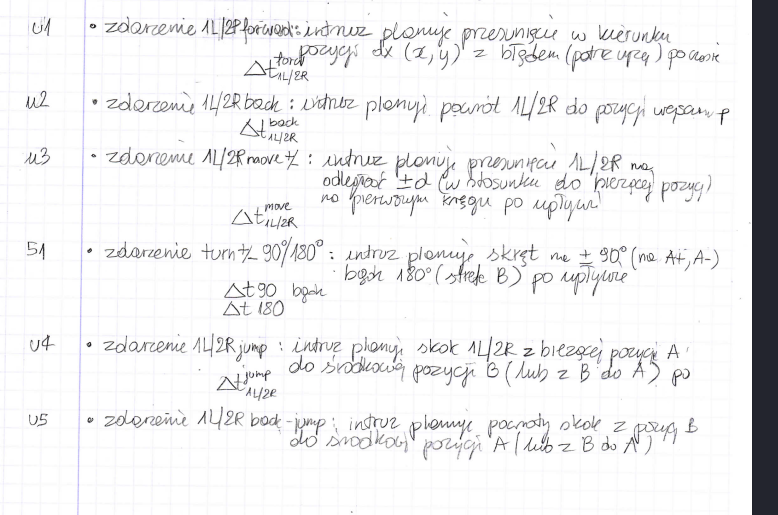 u1 • zdarzenie 1L/2R forward: intruz planuje przesunięcie w kierunku
pozycji dx (x, y) z błędem (patrz wyżej) po czasie
Δt forw 1L/2R
u2 • zdarzenie 1L/2R back: intruz planuje powrót 1L/2R do pozycji
Δt back 1L/2R
u3 • zdarzenie 1L/2R move +/-: intruz planuje przesunięcie 1L/2R na
odległość ±d (w stosunku do bieżącej pozycji)
na pierwszym kręgu po upływie
Δt move 1L/2R
S1 • zdarzenie turn +/- 90°/180°: intruz planuje skręt na ± 90° (na A+, A-)
bądź 180° (strefa B) po upływie
Δt 90 bądź
Δt 180
u4 • zdarzenie 1L/2R jump: intruz planuje skok 1L/2R z bieżącej pozycji A
do środkowej pozycji B (lub z B do A) po
Δt jump 1L/2R
u5 • zdarzenie 1L/2R back-jump: intruz planuje powrotny skok z pozycji B
do środkowej pozycji A (lub z B do A)